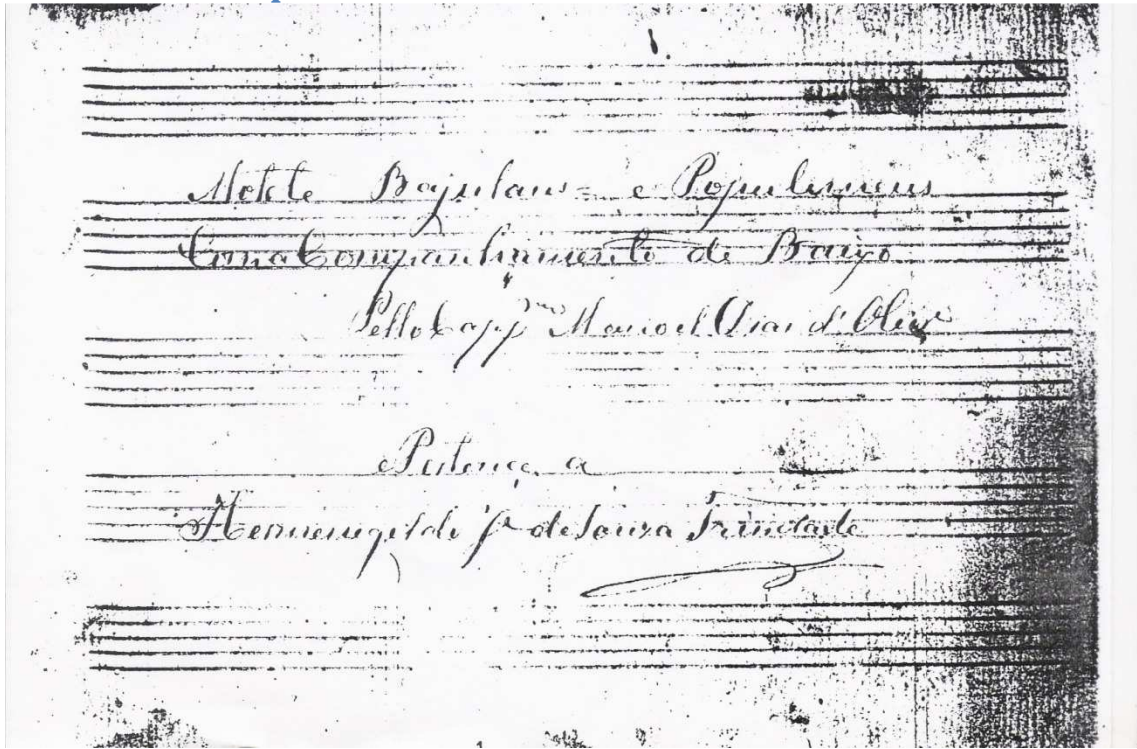 Motete Bajulans = e Popule meus
Com aCompanhamento de Baixo
Pello Capp.m Manoel Dias d'Olivr.a
Pertence a
Hermenegildo J.e de Souza Trindade